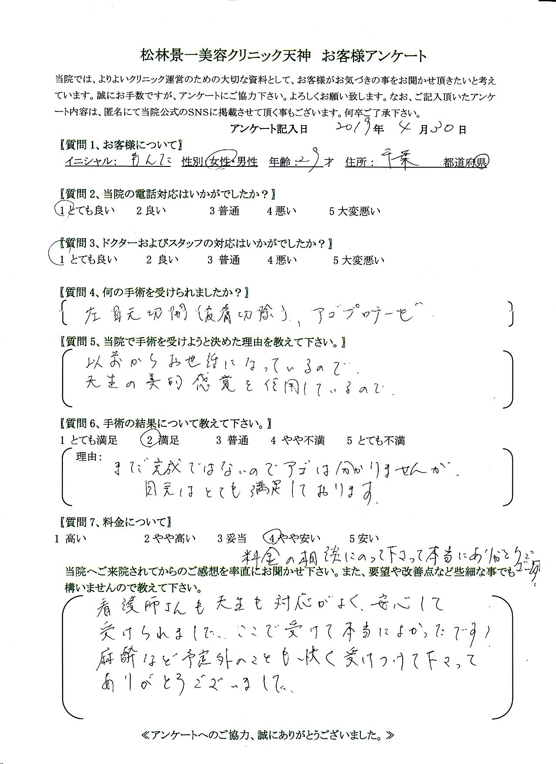 松林景一美容クリニック天神 お客様アンケート
当院では、よりよいクリニック運営のための大切な資料として、お客様がお気づきの事をお聞かせ頂きたいと考え
ています。誠にお手数ですが、アンケートにご協力下さい。よろしくお願い致します。なお、ご記入頂いたアンケ
ート内容は、匿名にて当院公式のSNSに掲載させて頂く事もございます。何卒ご了承下さい。
アンケート記入日 2019年 4月 30日
【質問1、お客様について】
イニシャル: 性別 女性・男性 年齢:29才 住所: 千葉 都道府県
【質問2、当院の電話対応はいかがでしたか?】
1 とても良い 2 良い 3 普通 4 悪い 5 大変悪い
【質問3、ドクターおよびスタッフの対応はいかがでしたか?】
1 とても良い 2 良い 3 普通 4 悪い 5 大変悪い
【質問4、何の手術を受けられましたか?】
左目元切開(皮膚切除)、アゴプロテーゼ
【質問5、当院で手術を受けようと決めた理由を教えて下さい。】
以前からお世話になっているので、
先生の美的感覚を信用しているので。
【質問6、手術の結果について教えて下さい。】
1 とても満足 2 満足 3 普通 4 やや不満 5 とても不満
理由:
まだ完成ではないのでアゴは分かりませんが、
目元はとても満足しております。
【質問7、料金について】
1 高い 2 やや高い 3 妥当 4 やや安い 5 安い
料金の相談にのって下さって本当にありがとうございます
当院へご来院されてからのご感想を率直にお聞かせ下さい。また、要望や改善点など些細な事でも
構いませんので教えて下さい。
看護師さんも先生も対応がよく、安心して
受けられました。ここで受けて本当によかったです!
麻酔など予定外のことも快く受けつけて下さって
ありがとうございました。
≪アンケートへのご協力、誠にありがとうございました。≫